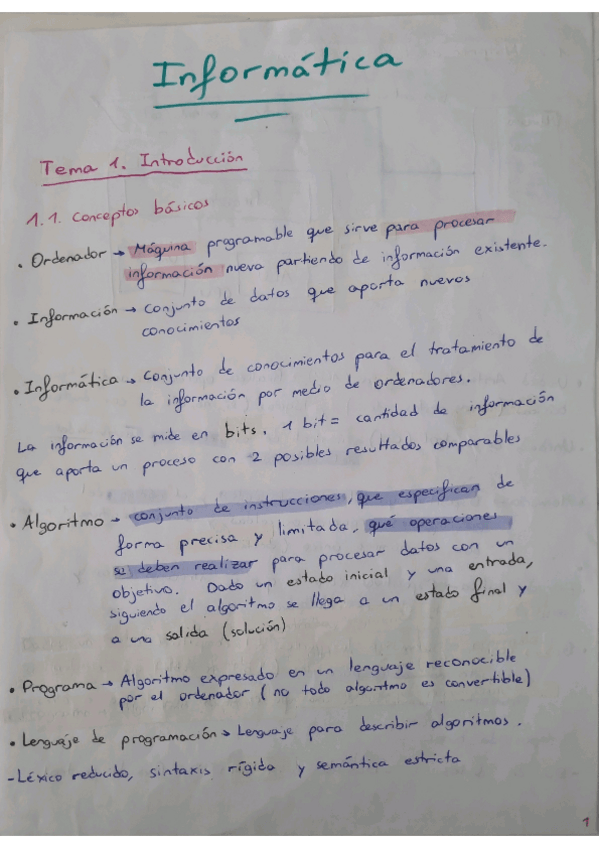 Informática
Tema 1. Introducción
1.1. Conceptos básicos
• Ordenador → Máquina programable que sirve para procesar
información nueva partiendo de información existente.
• Información → conjunto de datos que aporta nuevos
conocimientos
• Informática → conjunto de conocimientos para el tratamiento de
la información por medio de ordenadores.
La información se mide en bits. 1 bit = cantidad de información
que aporta un proceso con 2 posibles resultados comparables
• Algoritmo → conjunto de instrucciones, que especifican de
forma precisa y limitada, qué operaciones
se deben realizar para procesar datos con un
objetivo. Dado un estado inicial y una entrada,
siguiendo el algoritmo se llega a un estado final y
a una salida (solución)
• Programa → Algoritmo expresado en un lenguaje reconocible
por el ordenador (no todo algoritmo es convertible)
• Lenguaje de programación → Lenguaje para describir algoritmos.
- Léxico reducido, sintaxis rígida y semántica estricta
1